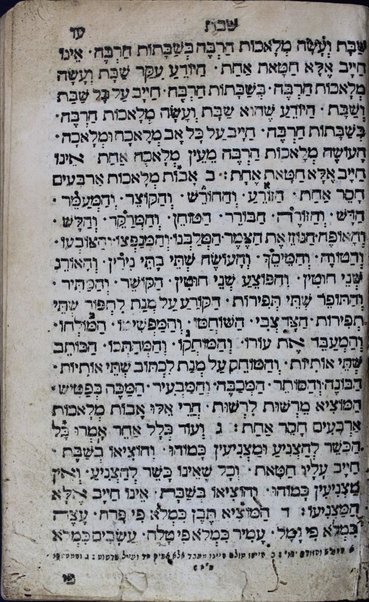 שבת
עד
שַׁבָּת וְעָשָׂה מְלָאכוֹת הַרְבֵּה בְּשַׁבָּתוֹת הַרְבֵּה· אֵינוֹ
חַיָּיב אֶלָּא חַטָּאת אַחַת· הַיּוֹדֵעַ עִקַּר שַׁבָּת וְעָשָׂה
מְלָאכוֹת הַרְבֵּה· בְּשַׁבָּתוֹת הַרְבֵּה· חַיָּיב עַל כָּל שַׁבָּת
וְשַׁבָּת· הַיּוֹדֵעַ שֶׁהוּא שַׁבָּת וְעָשָׂה מְלָאכוֹת הַרְבֵּה·
בְּשַׁבָּתוֹת הַרְבֵּה· חַיָּיב עַל כָּל אַב מְלָאכָה וּמְלָאכָה·
הָעוֹשֶׂה מְלָאכוֹת הַרְבֵּה מֵעֵין מְלָאכָה אַחַת אֵינוֹ
חַיָּיב אֶלָּא חַטָּאת אֶחָת: ב אֲבוֹת מְלָאכוֹת אַרְבָּעִים
חָסֵר אַחַת· הַזּוֹרֵעַ· וְהַחוֹרֵשׁ· וְהַקּוֹצֵר· וְהַמְעַמֵּר·
הַדָּשׁ· וְהַזּוֹרֶה· הַבּוֹרֵר· הַטּוֹחֵן· וְהַמְרַקֵּד· וְהַלָּשׁ·
וְהָאוֹפֶה· הַגּוֹזֵז אֶת הַצֶּמֶר הַמְלַבְּנוֹ· וְהַמְנַפְּצוֹ· הַצּוֹבְעוֹ·
וְהַטּוֹוֶה· וְהַמֵּיסֵךְ· וְהָעוֹשֶׂה שְׁתֵּי בָתֵּי נִירִין· וְהָאוֹרֵג
שְׁנֵי חוּטִין· וְהַפּוֹצֵעַ שְׁנֵי חוּטִין· הַקּוֹשֵׁר· וְהַמַּתִּיר·
וְהַתּוֹפֵר שְׁתֵּי תְפִירוֹת· הַקּוֹרֵעַ עַל מְנָת לִתְפּוֹר שְׁתֵּי
תְפִירוֹת· הַצָּד צְבִי· הַשּׁוֹחֲטוֹ· וְהַמַּפְשִׁיטוֹ· הַמּוֹלְחוֹ·
וְהַמְעַבֵּד אֶת עוֹרוֹ· וְהַמּוֹחֲקוֹ· וְהַמְחַתְּכוֹ· הַכּוֹתֵב
שְׁתֵּי אוֹתִיּוֹת· וְהַמּוֹחֵק עַל מְנָת לִכְתּוֹב שְׁתֵּי אוֹתִיּוֹת·
הַבּוֹנֶה· וְהַסּוֹתֵר· הַמְכַבֶּה· וְהַמַּבְעִיר· הַמַּכֶּה בַפַּטִּישׁ·
הַמּוֹצִיא מֵרְשׁוּת לִרְשׁוּת· הֲרֵי אֵלּוּ אֲבוֹת מְלָאכוֹת
אַרְבָּעִים חָסֵר אַחַת: ג וְעוֹד כְּלָל אַחֵר אָמְרוּ· כָּל
הַכָּשֵׁר לְהַצְנִיעַ וּמַצְנִיעִין כָּמוֹהוּ· וְהוֹצִיאוֹ בְּשַׁבָּת·
חַיָּיב עָלָיו חַטָּאת· וְכָל שֶׁאֵינוֹ כָּשֵׁר לְהַצְנִיעַ· וְאֵין
מַצְנִיעִין כָּמוֹהוּ· וְהוֹצִיאוֹ בְּשַׁבָּת· אֵינוֹ חַיָּיב אֶלָּא
הַמַּצְנִיעוֹ: ד הַמּוֹצִיא תֶבֶן כִּמְלֹא פִי פָרָה· עֵצָה
כִּמְלֹא פִי גָמָל· עָמִיר כִּמְלֹא פִי טָלֶה· עֲשָׂבִים כִּמְלֹא
פי